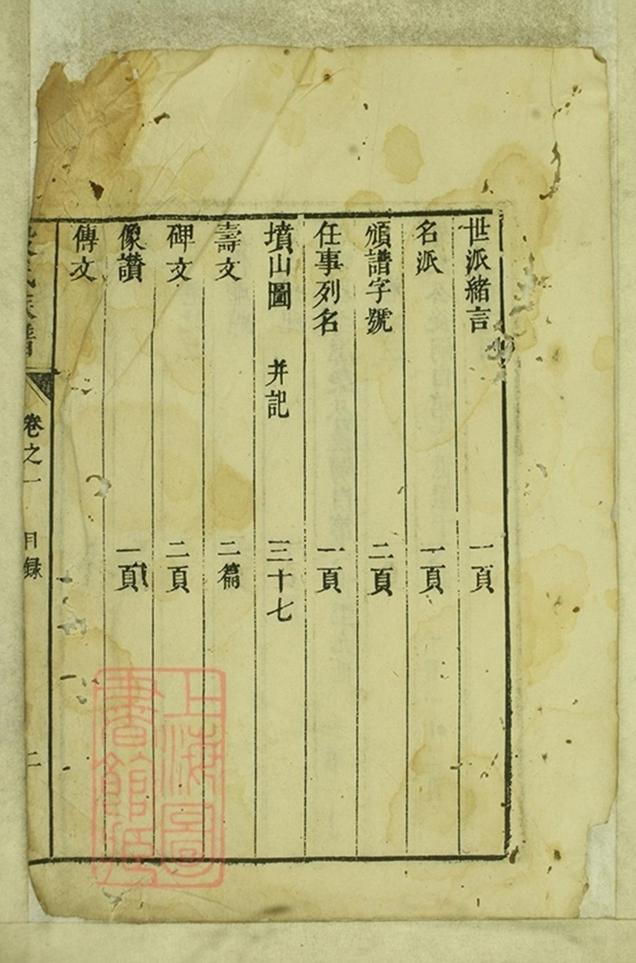 世派緒言 一頁
名派 一頁
頒譜字號 二頁
任事列名 一頁
墳山圖 并記 三十七
壽文 二篇
碑文 二頁
像讚 一頁
傳文
氏族譜 卷之一 目録 二
上海圖
書館藏